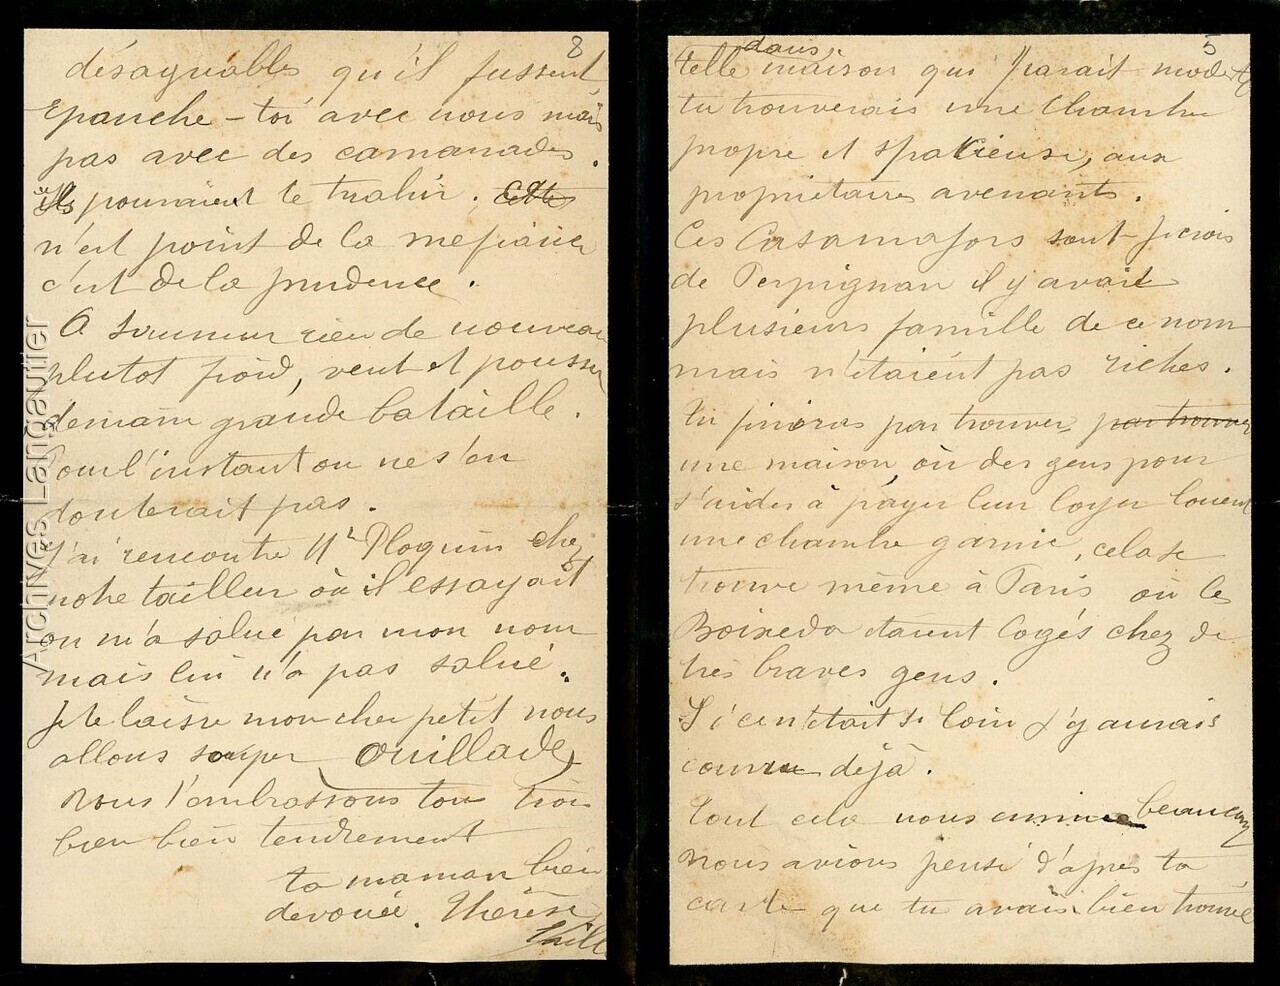 8
désagréables qu'il fussent
Epanche-toi avec nous mais
pas avec des camarades.
ils pourraient te trahir. Cette
n'est point de la mefiance
c'est de la prudence.
A rien de nouveau
plutot froid, vent et poussi
demain grande bataille.
Pour l'instant on ne s'en
douterait pas.
J'ai rencontré Mr Ploquin chez
notre tailleur où il essayait
on m'a salué par mon nom
mais lui n'a pas salué.
Je te laisse mon cher petit nous
allons souper (Ouillade)
Nous t'embrassons tous trois
bien bien tendrement
ta maman bien
devouée. Thérèse
5
telle dans maison qui parait modeste
tu trouverais une chambre
propre et spacieuse, aux
propriétaires avenants.
Ces Casamajors sont-je crois
de Perpignan il y avait
plusieurs famille de ce nom
mais n'étaient pas riches.
Tu finiras par trouver par trouver
une maison où des gens pour
s'aider à payer leur loyer louent
une chambre garnie, cela se
trouve même à Paris où les
Boixeda étaient logés chez de
très braves gens.
Si c'en était si loin j'y aurais
couru déjà.
tout cela nous ennuie beaucoup
nous avions pensé d'après ta
carte que tu avais bien trouvé
Archives Langautier